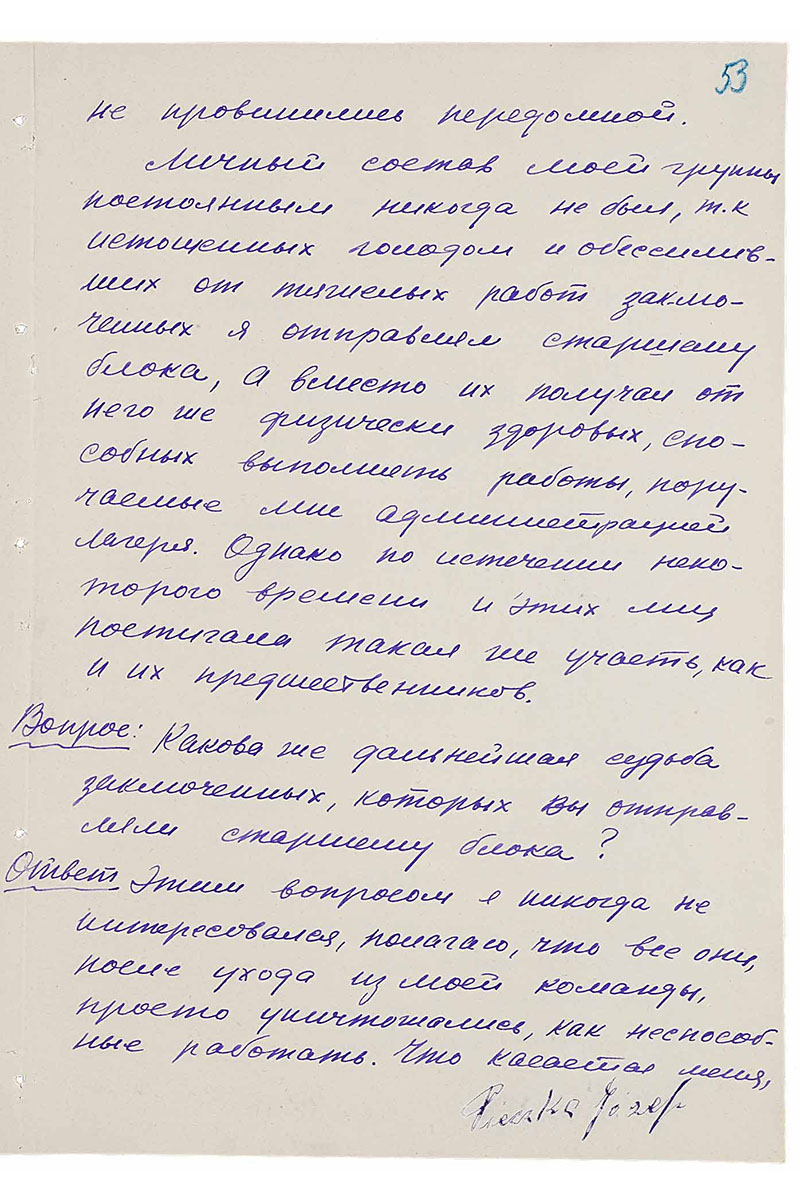 53
не провинились передомной.
Личный состав моей группы
постоянным никогда не был, т.к
истощенных голодом и обессилив-
ших от тяжелых работ заклю-
ченных я отправлял старшему
блока, а вместо их получал от
него же физически здоровых, спо-
собных выполнять работы, пору-
чаемые мне администрацией
лагеря. Однако по истечении неко-
торого времени и этих лиц
постигала такая же участь, как
и их предшественников.
Вопрос: Какова же дальнейшая судьба
заключенных, которых вы отправ-
ляли старшему блока?
Ответ Этим вопросом я никогда не
интересовался, полагаю, что все они,
после ухода из моей команды,
просто уничтожались, как неспособ-
ные работать. Что касается меня,
Józef